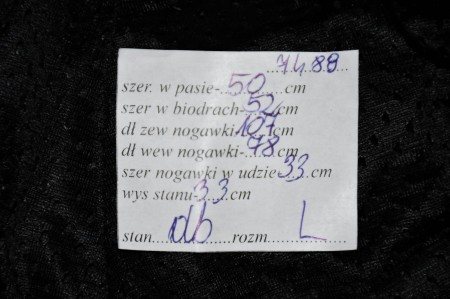 ...7488...
szer. w pasie-..50......cm
szer w biodrach-52.cm
dł zew nogawki-107cm
dł wew nogawki-.78.cm
szer nogawki w udzie33..cm
wys stanu-33.cm
stan...db......rozm.....L......